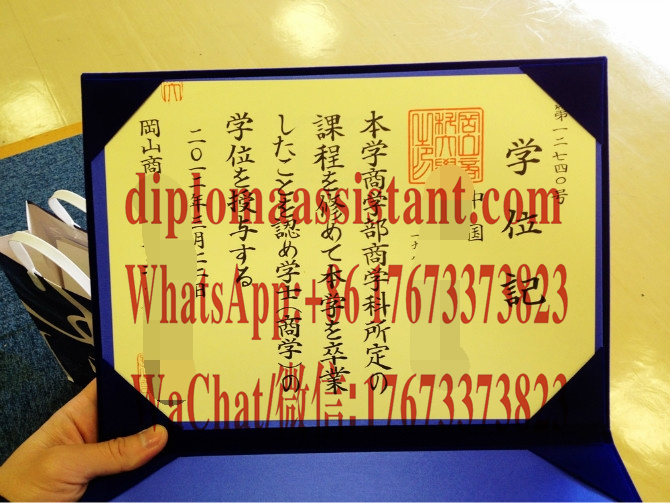 第一二七四〇号
学位記
中国
本学商学部商学科所定の
課程を修めて本学を卒業
したことを認め学士(商学)の
学位を授与する
二〇一二年三月二〇日
岡山商
diplomaassistant.com
WhatsApp:+86 17673373823
WaChat/微信:17673373823